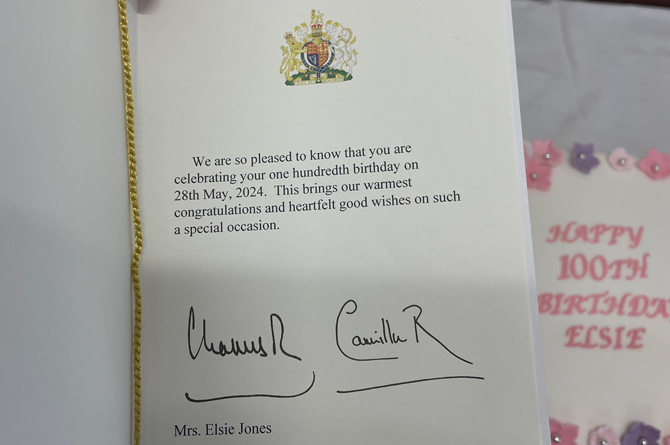 We are so pleased to know that you are
celebrating your one hundredth birthday on
28th May, 2024. This brings our warmest
congratulations and heartfelt good wishes on such
a special occasion.
Charles R
Camilla R
Mrs. Elsie Jones
HAPPY
100TH
BIRTHDA
ELSIE